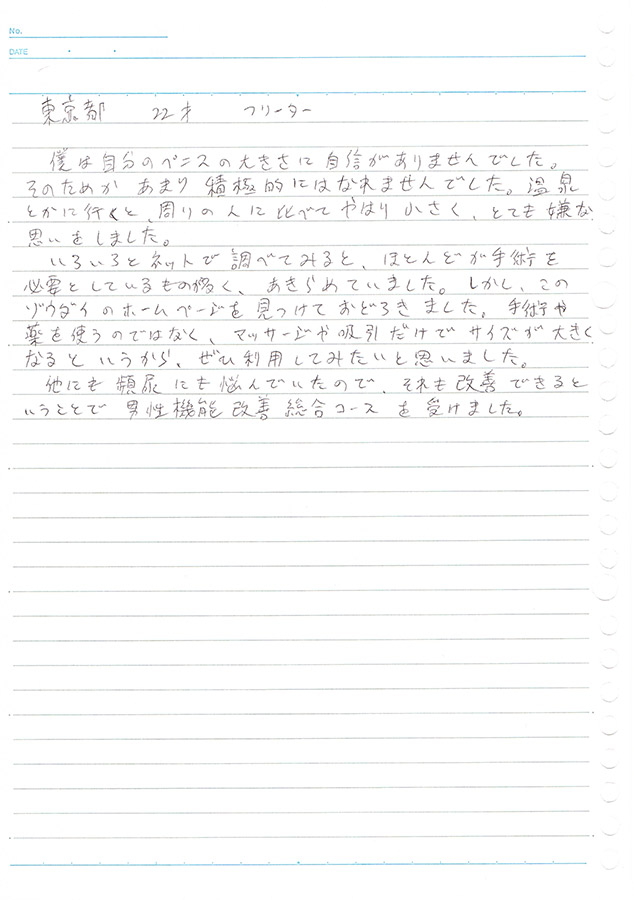 No.
DATE
東京都 22才 フリーター
僕は自分のペニスの大きさに自信がありませんでした。
そのためか あまり 積極的にはなれませんでした。温泉
とかに行くと、周りの人に比べて やはり 小さく、とても嫌な
思いをしました。
いろいろとネットで 調べてみると、ほとんどが手術を
必要としているものが多く、あきらめていました。しかし、この
ゾウダイのホームページを見つけて おどろきました。手術や
薬を使うのではなく、マッサージや吸引だけで サイズが大きく
なると いうから、ぜひ利用してみたいと思いました。
他にも 頻尿 にも悩んでいたので、それも改善 できると
いうことで 男性機能 改善 総合コース を受けました。